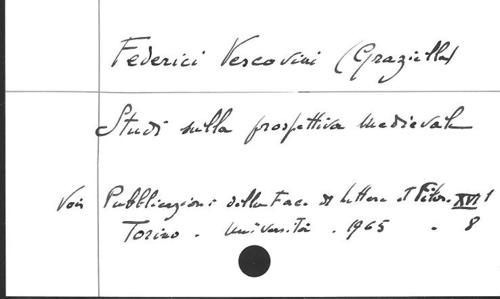 Federici Vescovini (Graziella)
Studi sulla prospettiva medievale
Voir Pubblicazioni della Fac. di lettere et Filos. XVI 1
Torino. Università. 1965. 8